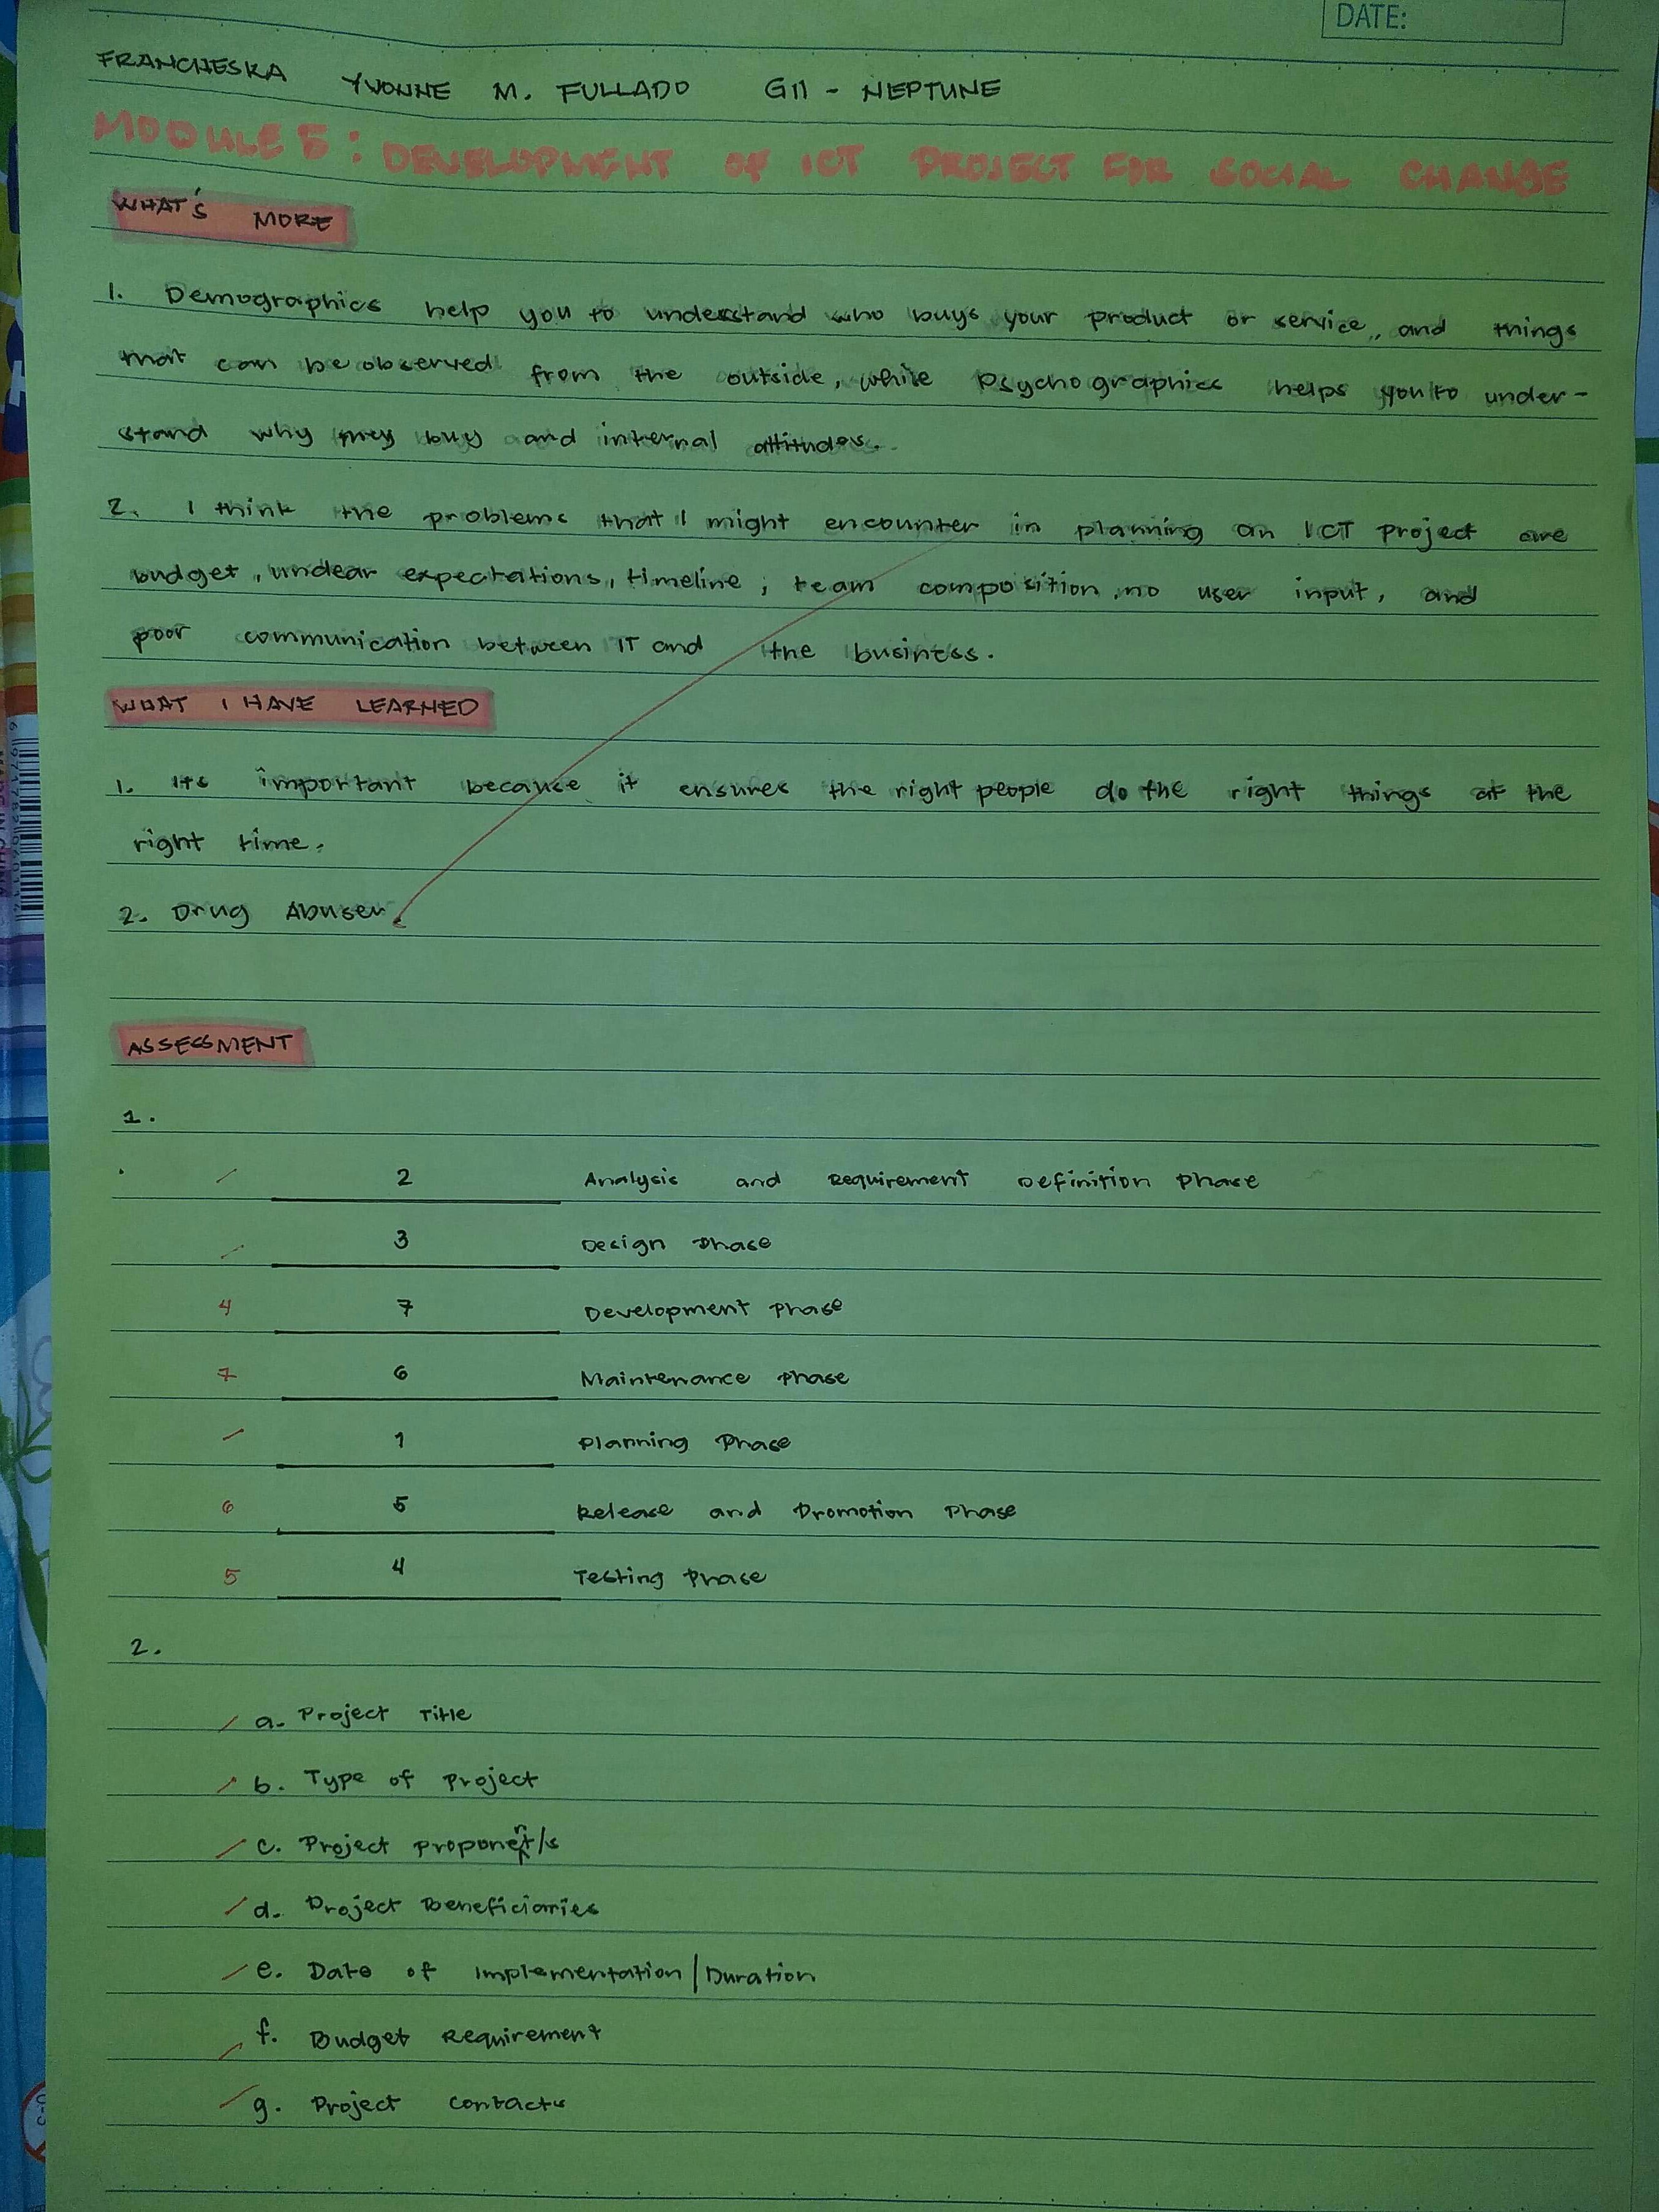 DATE:
FRANCHESKA YVONNE M. FULLADO G11 - NEPTUNE
MODULE 5: DEVELOPMENT OF ICT PROJECT FOR SOCIAL CHANGE
WHAT'S MORE
1. Demographics help you to understand who buys your product or service, and things
that can be observed from the outside, while Psychographics helps you to under-
stand why they buy and internal attitudes.
2. I think the problems that I might encounter in planning an ICT project are
budget, unclear expectations, timeline, team composition, no user input, and
poor communication between IT and the business.
WHAT I HAVE LEARNED
1. Its important because it ensures the right people do the right things at the
right time.
2. Drug Abuser.
ASSESSMENT
1.
2 Analysis and Requirement Definition Phase
3 Design Phase
4 7 Development Phase
7 6 Maintenance Phase
1 Planning Phase
6 5 Release and Promotion Phase
5 4 Testing Phase
2.
a. Project Title
b. Type of Project
c. Project Proponent/s
d. Project Beneficiaries
e. Date of Implementation/Duration
f. Budget Requirement
g. Project Contacts